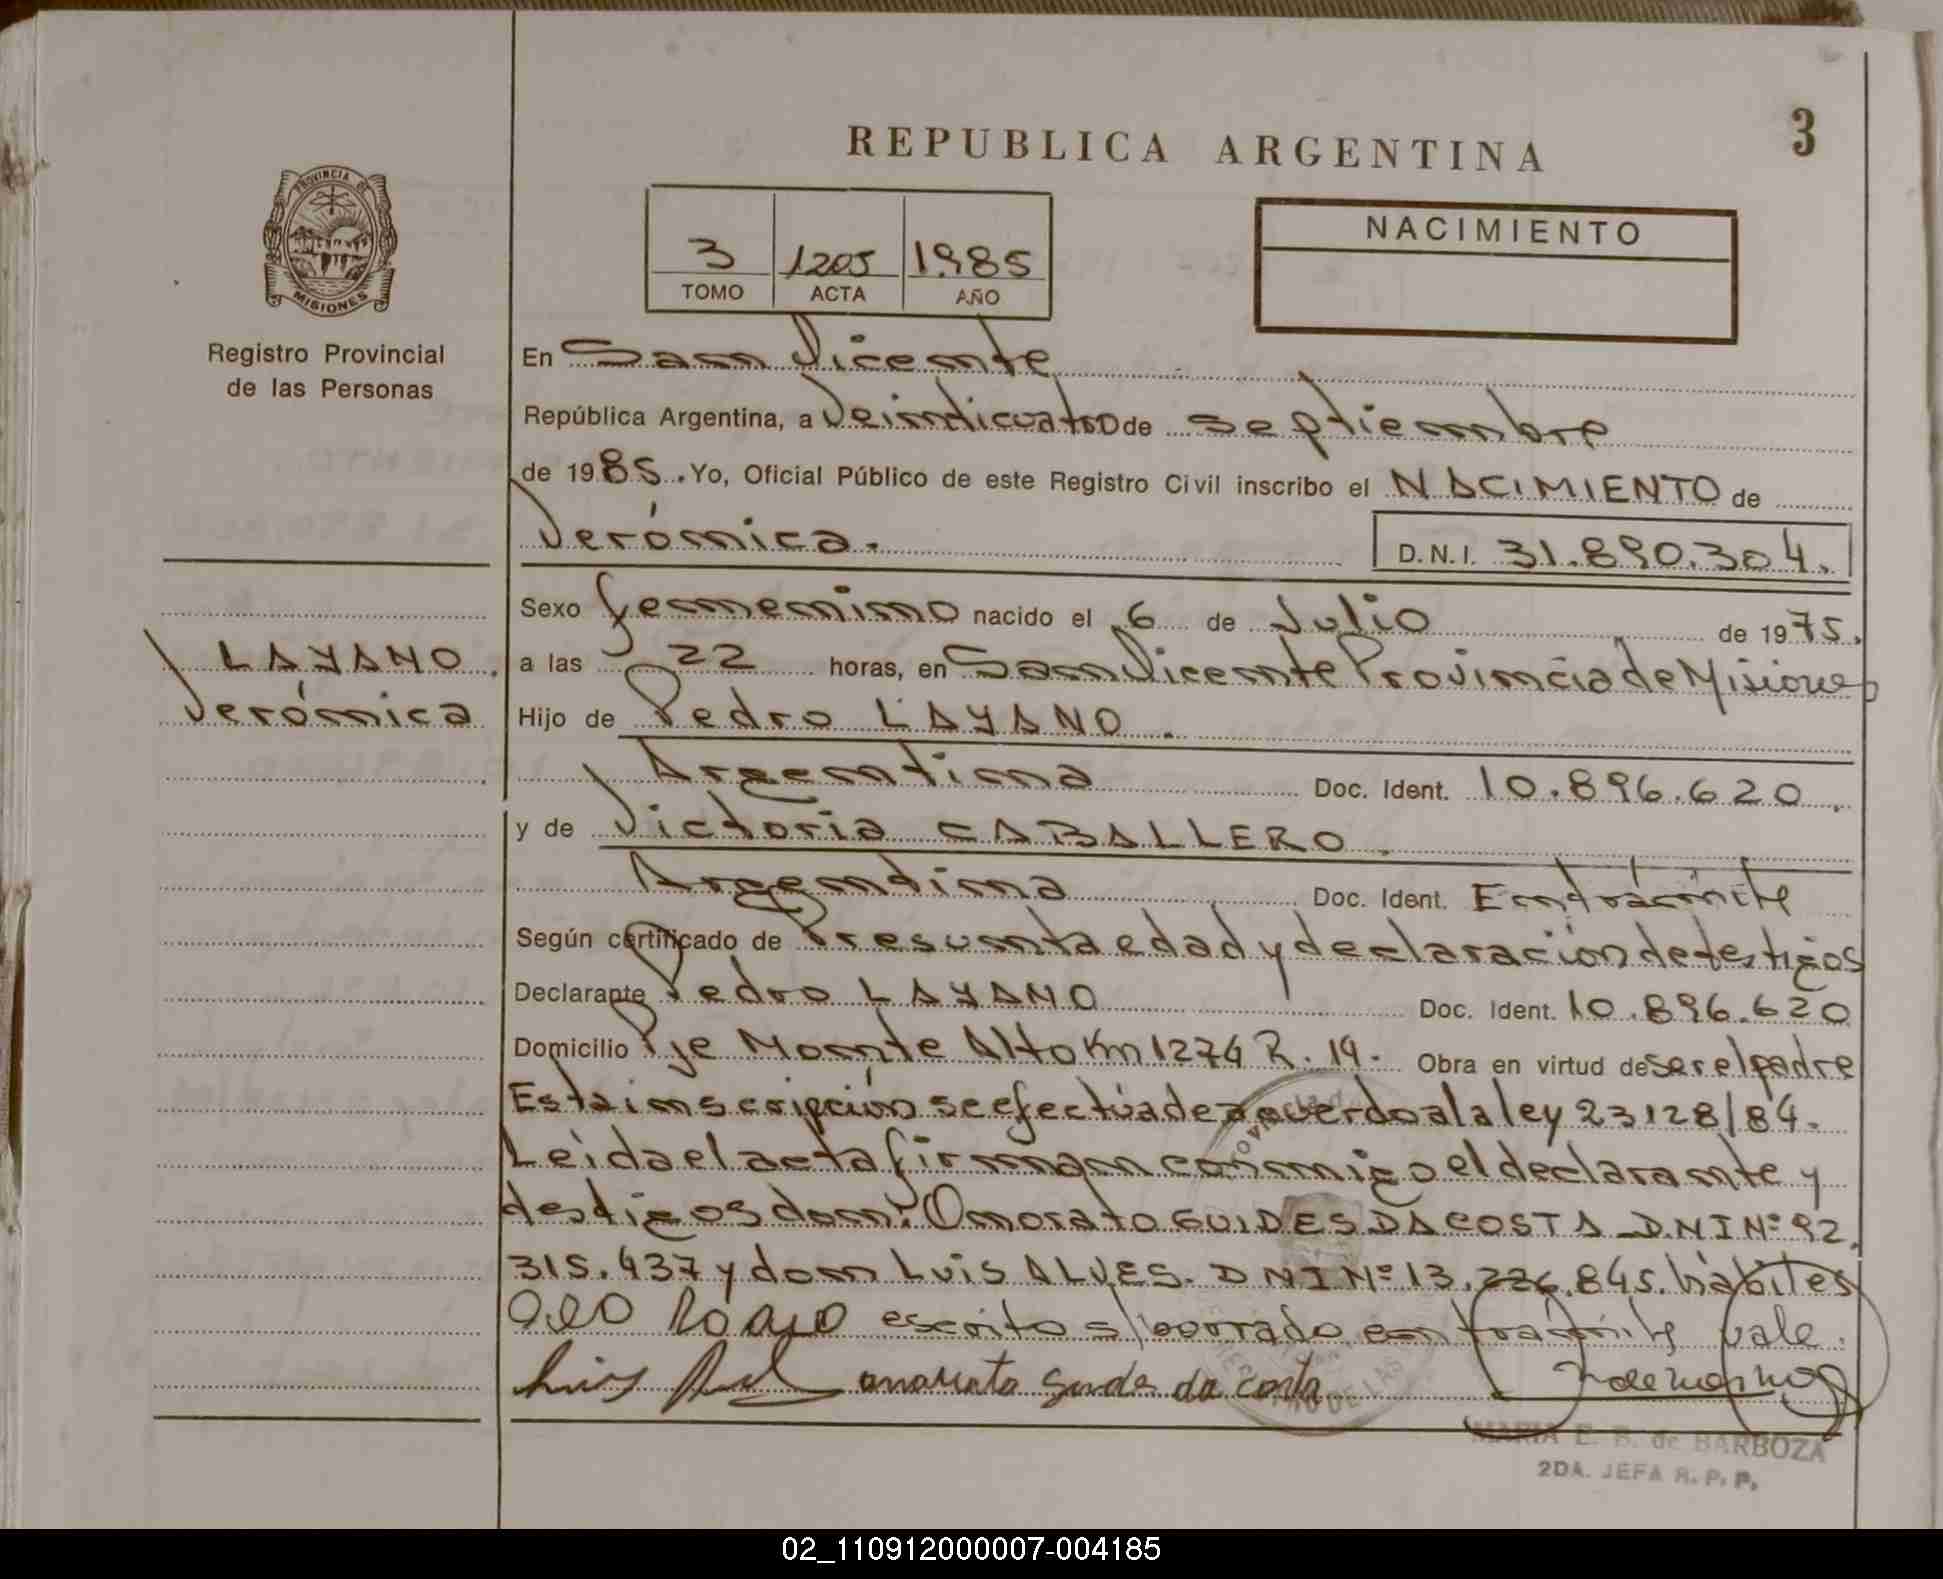 REPUBLICA ARGENTINA
3
PROVINCIA DE
MISIONES
Registro Provincial
de las Personas
3 1205 1985
TOMO ACTA AÑO
NACIMIENTO
En San Vicente
República Argentina, a Veinticuatro de septiembre
de 1985. Yo, Oficial Público de este Registro Civil inscribo el NACIMIENTO de
Verónica. D.N.I. 31.890.304.
Sexo femenino nacido el 6 de Julio de 1975.
LAYANO
Verónica
a las 22 horas, en San Vicente Provincia de Misiones
Hijo de Pedro LAYANO.
Argentina Doc. Ident. 10.896.620.
y de Victoria CABALLERO.
Argentina Doc. Ident. En trámite
Según certificado de Presunta edad y declaración de testigos
Declarante Pedro LAYANO Doc. Ident. 10.896.620
Domicilio Pje Monte Alto Km 1274 R. 14. Obra en virtud de ser el padre
Esta inscripción se efectúa de acuerdo a la ley 23128/84.
Leida el acta firman conmigo el declarante y
testigos don: Onorato GUIDES DA COSTA D.N.I Nº 92.
315.437 y don Luis ALVES. DNI Nº 13.226.845. hábiles
escrito s/borrado en trámite vale.
Luis onorato guides da costa
MARIA E. B. de BARBOZA
2DA. JEFA R. P. P.
02_110912000007-004185